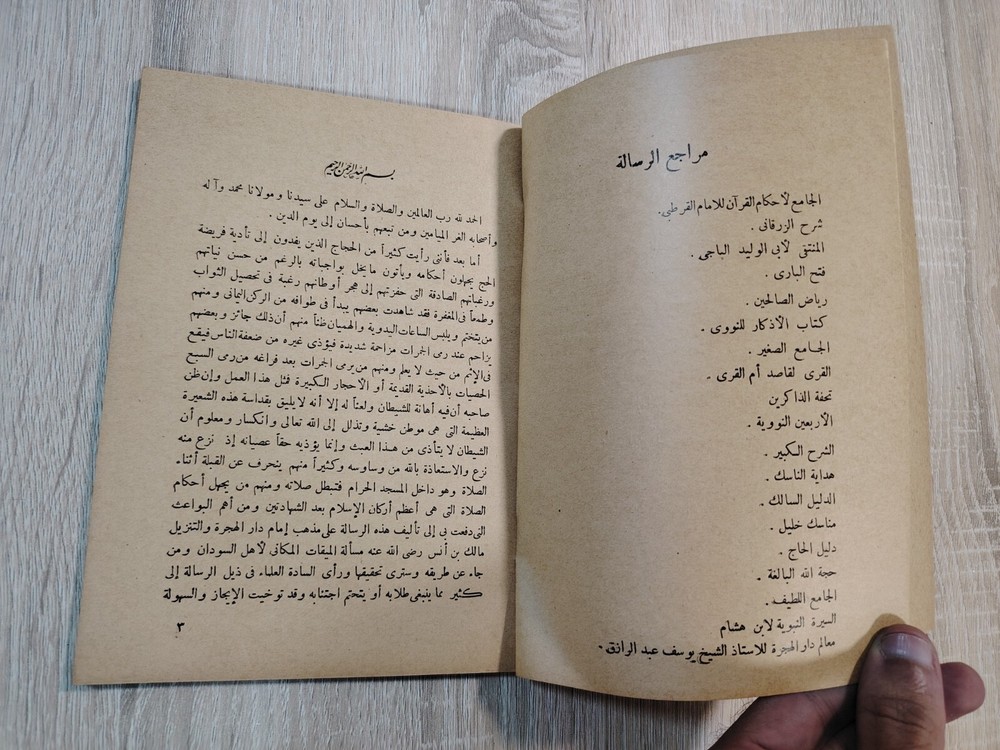 مراجع الرسالة
الجامع لأحكام القرآن للامام القرطبى.
شرح الزرقانى .
المنتقى لأبى الوليد الباجى .
فتح البارى .
رياض الصالحين .
كتاب الأذكار للنووى .
الجامع الصغير .
القرى لقاصد أم القرى .
تحفة الذاكرين
الأربعين النووية .
الشرح الكبير .
هداية الناسك .
الدليل السالك .
مناسك خليل .
دليل الحاج .
حجة الله البالغة .
الجامع اللطيف .
السيرة النبوية لابن هشام
معالم دار الهجرة للاستاذ الشيخ يوسف عبد الرازق .
بسم الله الرحمن الرحيم
الحمد لله رب العالمين والصلاة والسلام على سيدنا ومولانا محمد وآله
وأصحابه الغر الميامين ومن تبعهم بأحسان إلى يوم الدين .
أما بعد فأننى رأيت كثيراً من الحجاج الذين يفدون إلى تأدية فريضة
الحج يجهلون أحكامه ويأتون ما يخل بواجباته بالرغم من حسن نياتهم
ورغباتهم الصادقة التى حفزتهم إلى هجر أوطانهم رغبة فى تحصيل الثواب
وطمعاً فى المغفرة فقد شاهدت بعضهم يبدأ فى طوافه من الركن اليمانى ومنهم
من يتختم ويلبس الساعات اليدوية والهميان ظناً منهم أن ذلك جائز وبعضهم
يزاحم عند رمى الجمرات مزاحمة شديدة فيؤذى غيره من ضعفة الناس فيقع
فى الإثم من حيث لا يعلم ومنهم من يرمى الجمرات بعد فراغه من رمى السبع
الحصيات بالأحذية القديمة أو الأحجار الكبيرة فمثل هذا العمل وإن ظن
صاحبه أن فيه أهانة للشيطان ولعناً له إلا أنه لا يليق بقداسة هذه الشعيرة
العظيمة التى هى موطن خشية وتذلل إلى الله تعالى وانكسار ومعلوم أن
الشيطان لا يتأذى من هذا العبث وإنما يؤذيه حقاً عصيانه إذ نزع منه
نزع والاستعاذة بالله من وساوسه وكثيراً منهم ينحرف عن القبلة أثناء
الصلاة وهو داخل المسجد الحرام فتبطل صلاته ومنهم من يجهل أحكام
الصلاة التى هى أعظم أركان الإسلام بعد الشهادتين ومن أهم البواعث
التى دفعت بى إلى تأليف هذه الرسالة على مذهب إمام دار الهجرة والتنزيل
مالك بن أنس رضى الله عنه مسألة الميقات المكانى لأهل السودان ومن
جاء عن طريقه وسترى تحقيقها ورأى السادة العلماء فى ذيل الرسالة إلى
كثير مما ينبغى طلابه أو يتحتم اجتنابه وقد توخيت الإيجاز والسهولة
٣